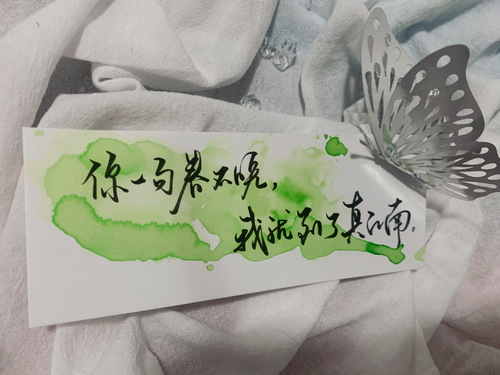 你一句春不晚，
我就到了真江南。